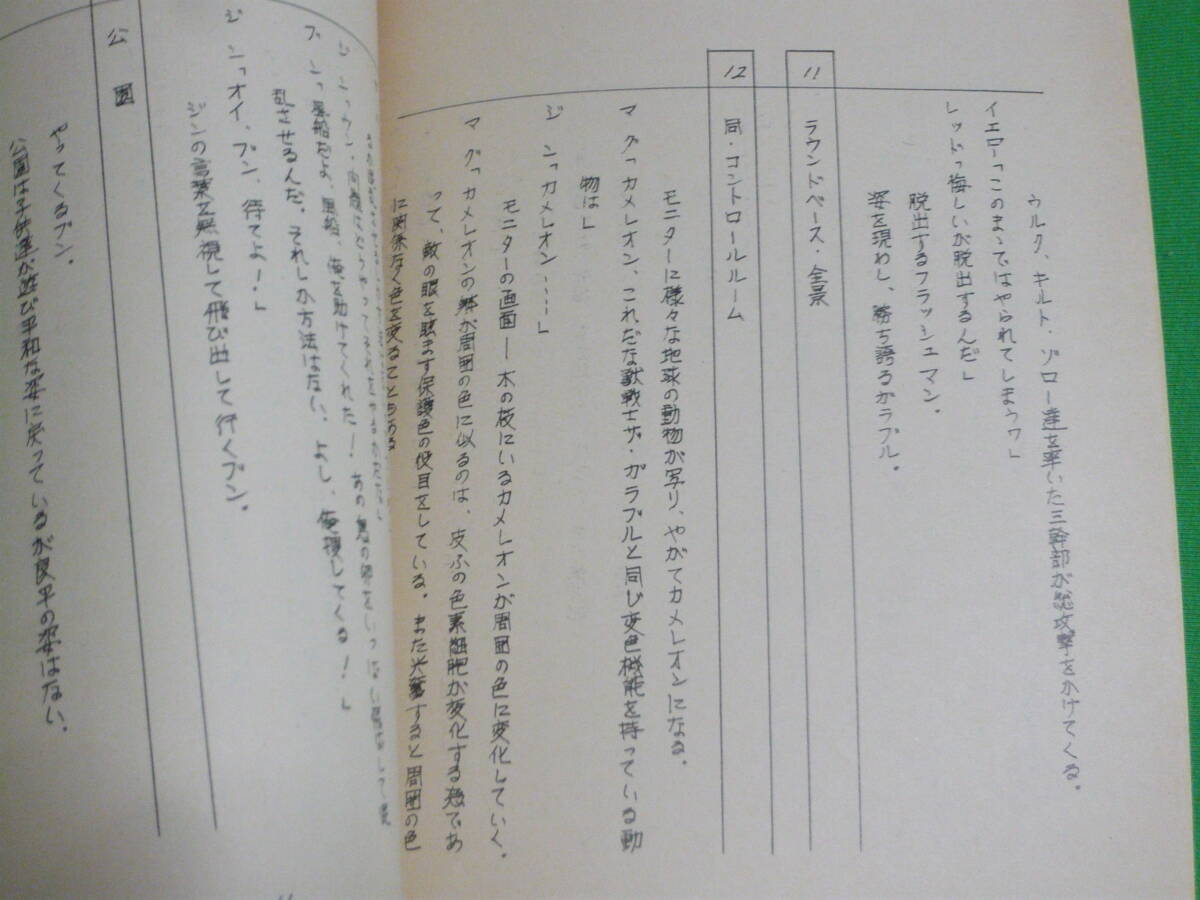 ウルク、キルト、ゾロー達を率いた三幹部が総攻撃をかけてくる。
イエロー「このまゝではやられてしまうワ」
レッド「悔しいが脱出するんだ」
脱出するフラッシュマン。
姿を現わし、勝ち誇るガラブル。
11 ラウンドベース・全景
12 同・コントロールルーム
モニターに様々な地球の動物が写り、やがてカメレオンになる。
マグ「カメレオン、これだな獣戦士ザ・ガラブルと同じ変色機能を持っている動
物は」
ジン「カメレオン……」
モニターの画面―木の枝にいるカメレオンが周囲の色に変化していく。
マグ「カメレオンの躰が周囲の色に似るのは、皮ふの色素細胞が変化する為であ
って、敵の眼を眩ます保護色の役目をしている。また光奮すると周囲の色
に関係なく色を変ることもある
ジン「ウン、問題はどうやってそれをやるかだな」
ブン「風船だよ、風船、俺を助けてくれた！あの
乱させるんだ。それしか方法はない、よし、俺捜してくる！」
ジン「オイ、ブン、待てよ！」
ジンの言葉を無視して飛び出して行くブン。
公園
やってくるブン。
公園は子供達が遊び平和な姿に戻っているが良平の姿はない。